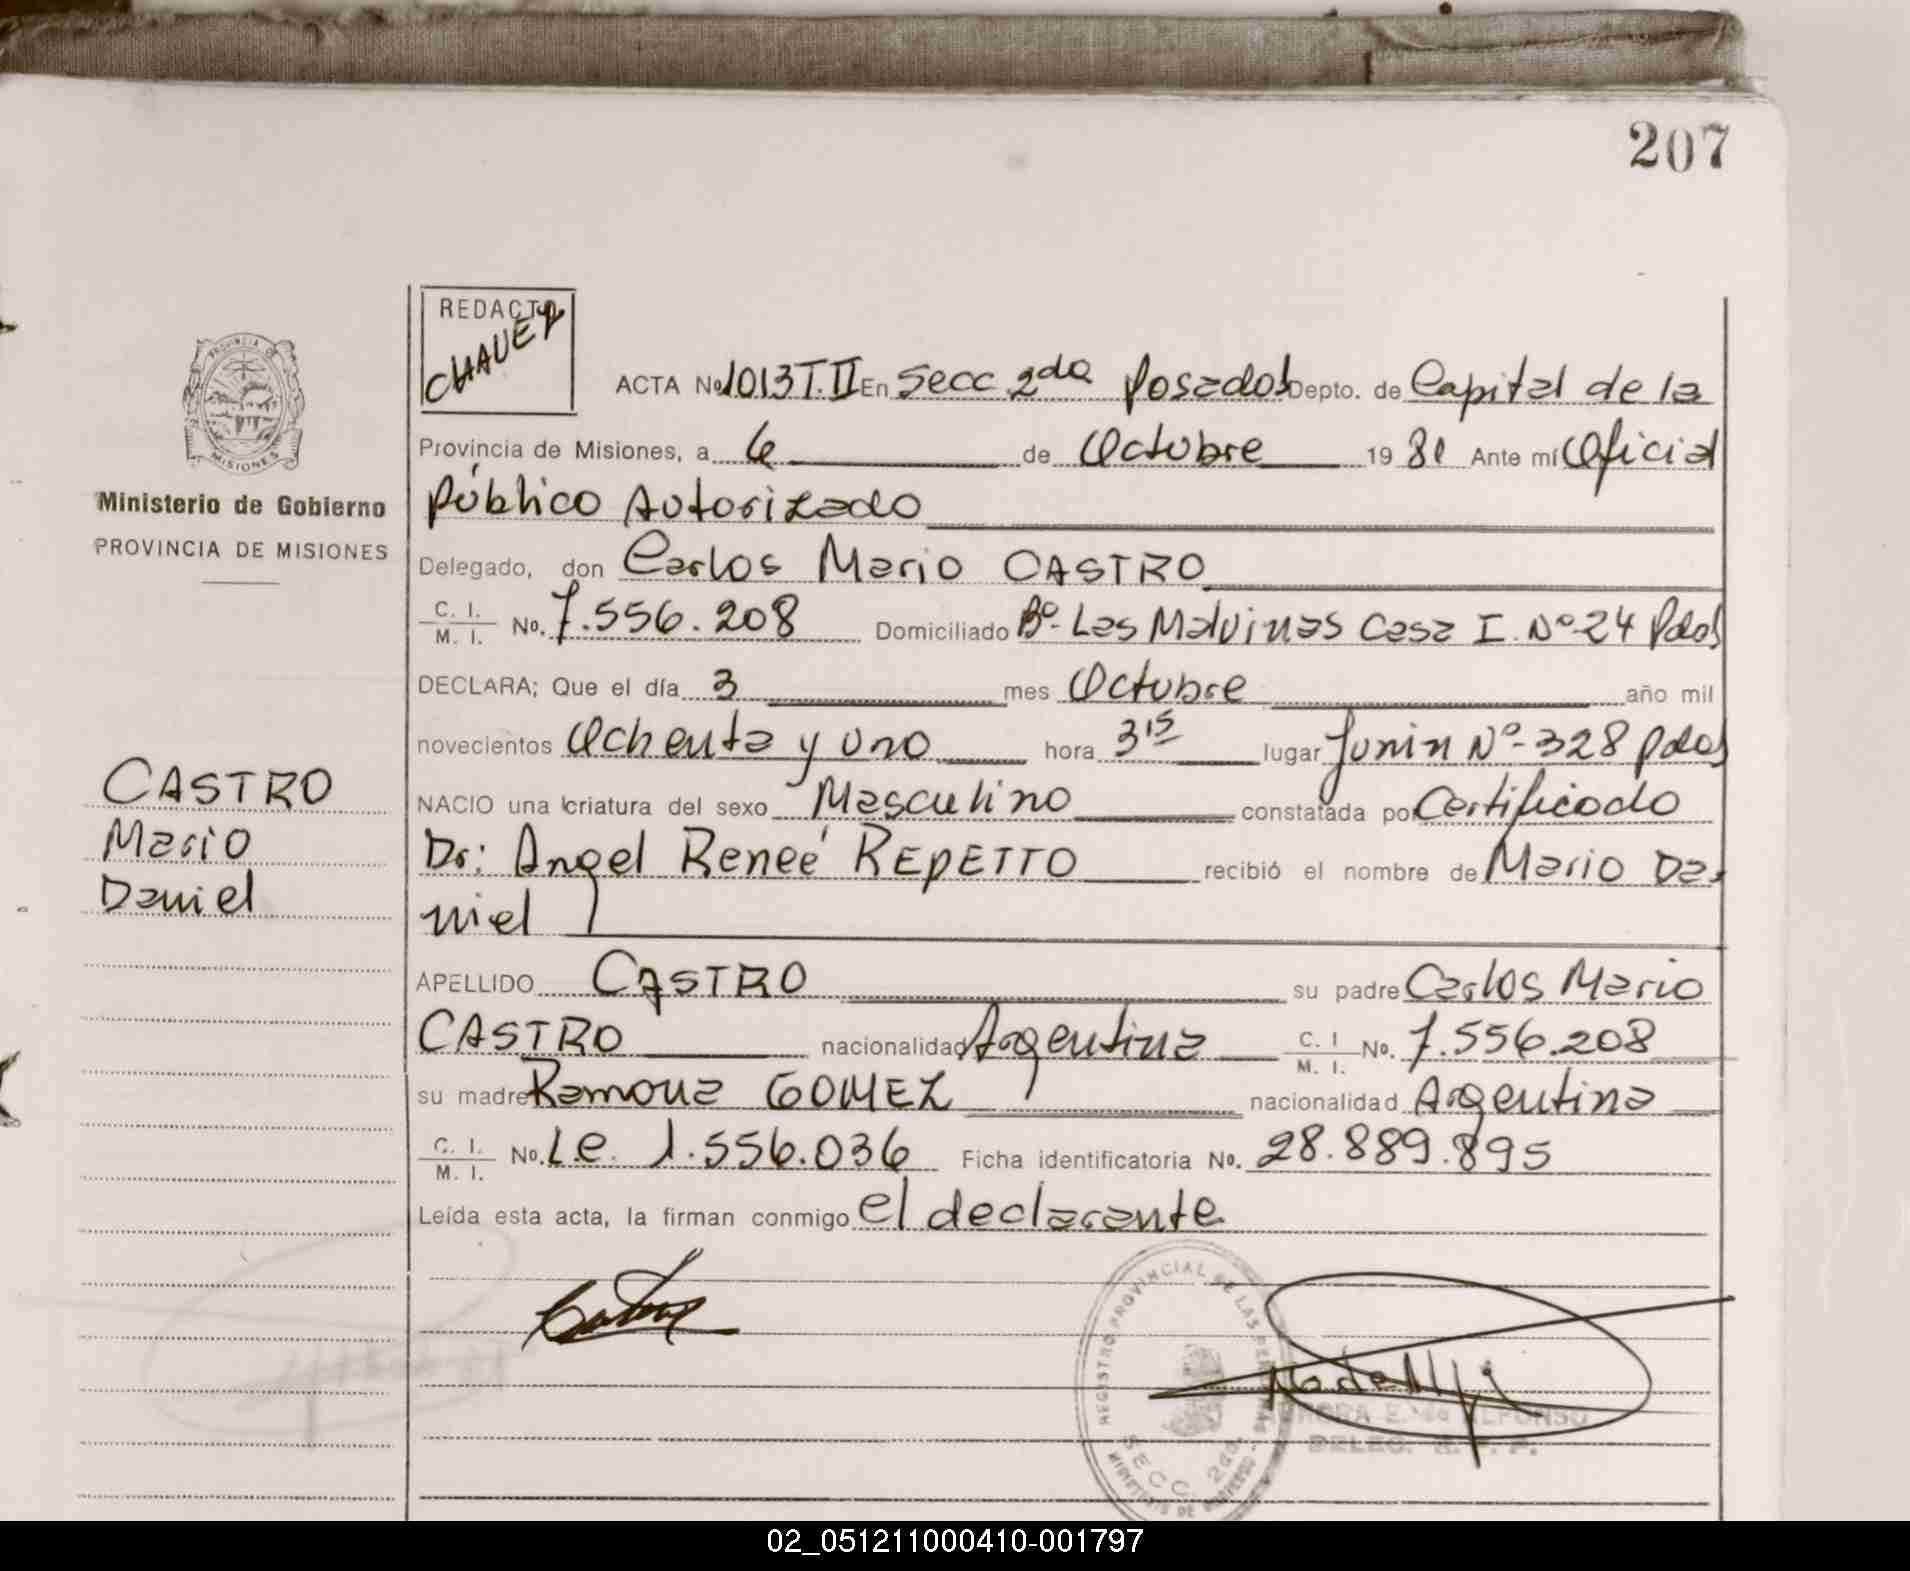 207
REDACTO
CHAVEZ
ACTA No 1013 T.II En Secc 2da Posadas Depto. de Capital de la
Provincia de Misiones, a 6 de Octubre 1981 Ante mí Oficial
Público Autorizado
Delegado, don Carlos Mario CASTRO
C. I. / M. I. No. 7.556.208 Domiciliado Bº- Las Malvinas Casa I. Nº-24 Pdas
DECLARA; Que el día 3 mes Octubre año mil
novecientos Ochenta y uno hora 3 15 lugar Junin Nº-328 Pdas
NACIO una criatura del sexo Masculino constatada por Certificado
Dr: Angel Reneé REPETTO recibió el nombre de Mario Da-
niel
APELLIDO CASTRO su padre Carlos Mario
CASTRO nacionalidad Argentina C. I / M. I. No. 7.556.208
su madre Ramona GOMEZ nacionalidad Argentina
C. I. / M. I. No. L.e. 1.556.036 Ficha identificatoria No. 28.889.895
Leída esta acta, la firman conmigo el declarante
PROVINCIA DE
MISIONES
Ministerio de Gobierno
PROVINCIA DE MISIONES
CASTRO
Mario
Daniel
REGISTRO PROVINCIAL DE LAS PERSONAS
SECC. 2da.
MINISTERIO DE GOBIERNO
ALFONSO
DELEG. R. P. P.
02_051211000410-001797